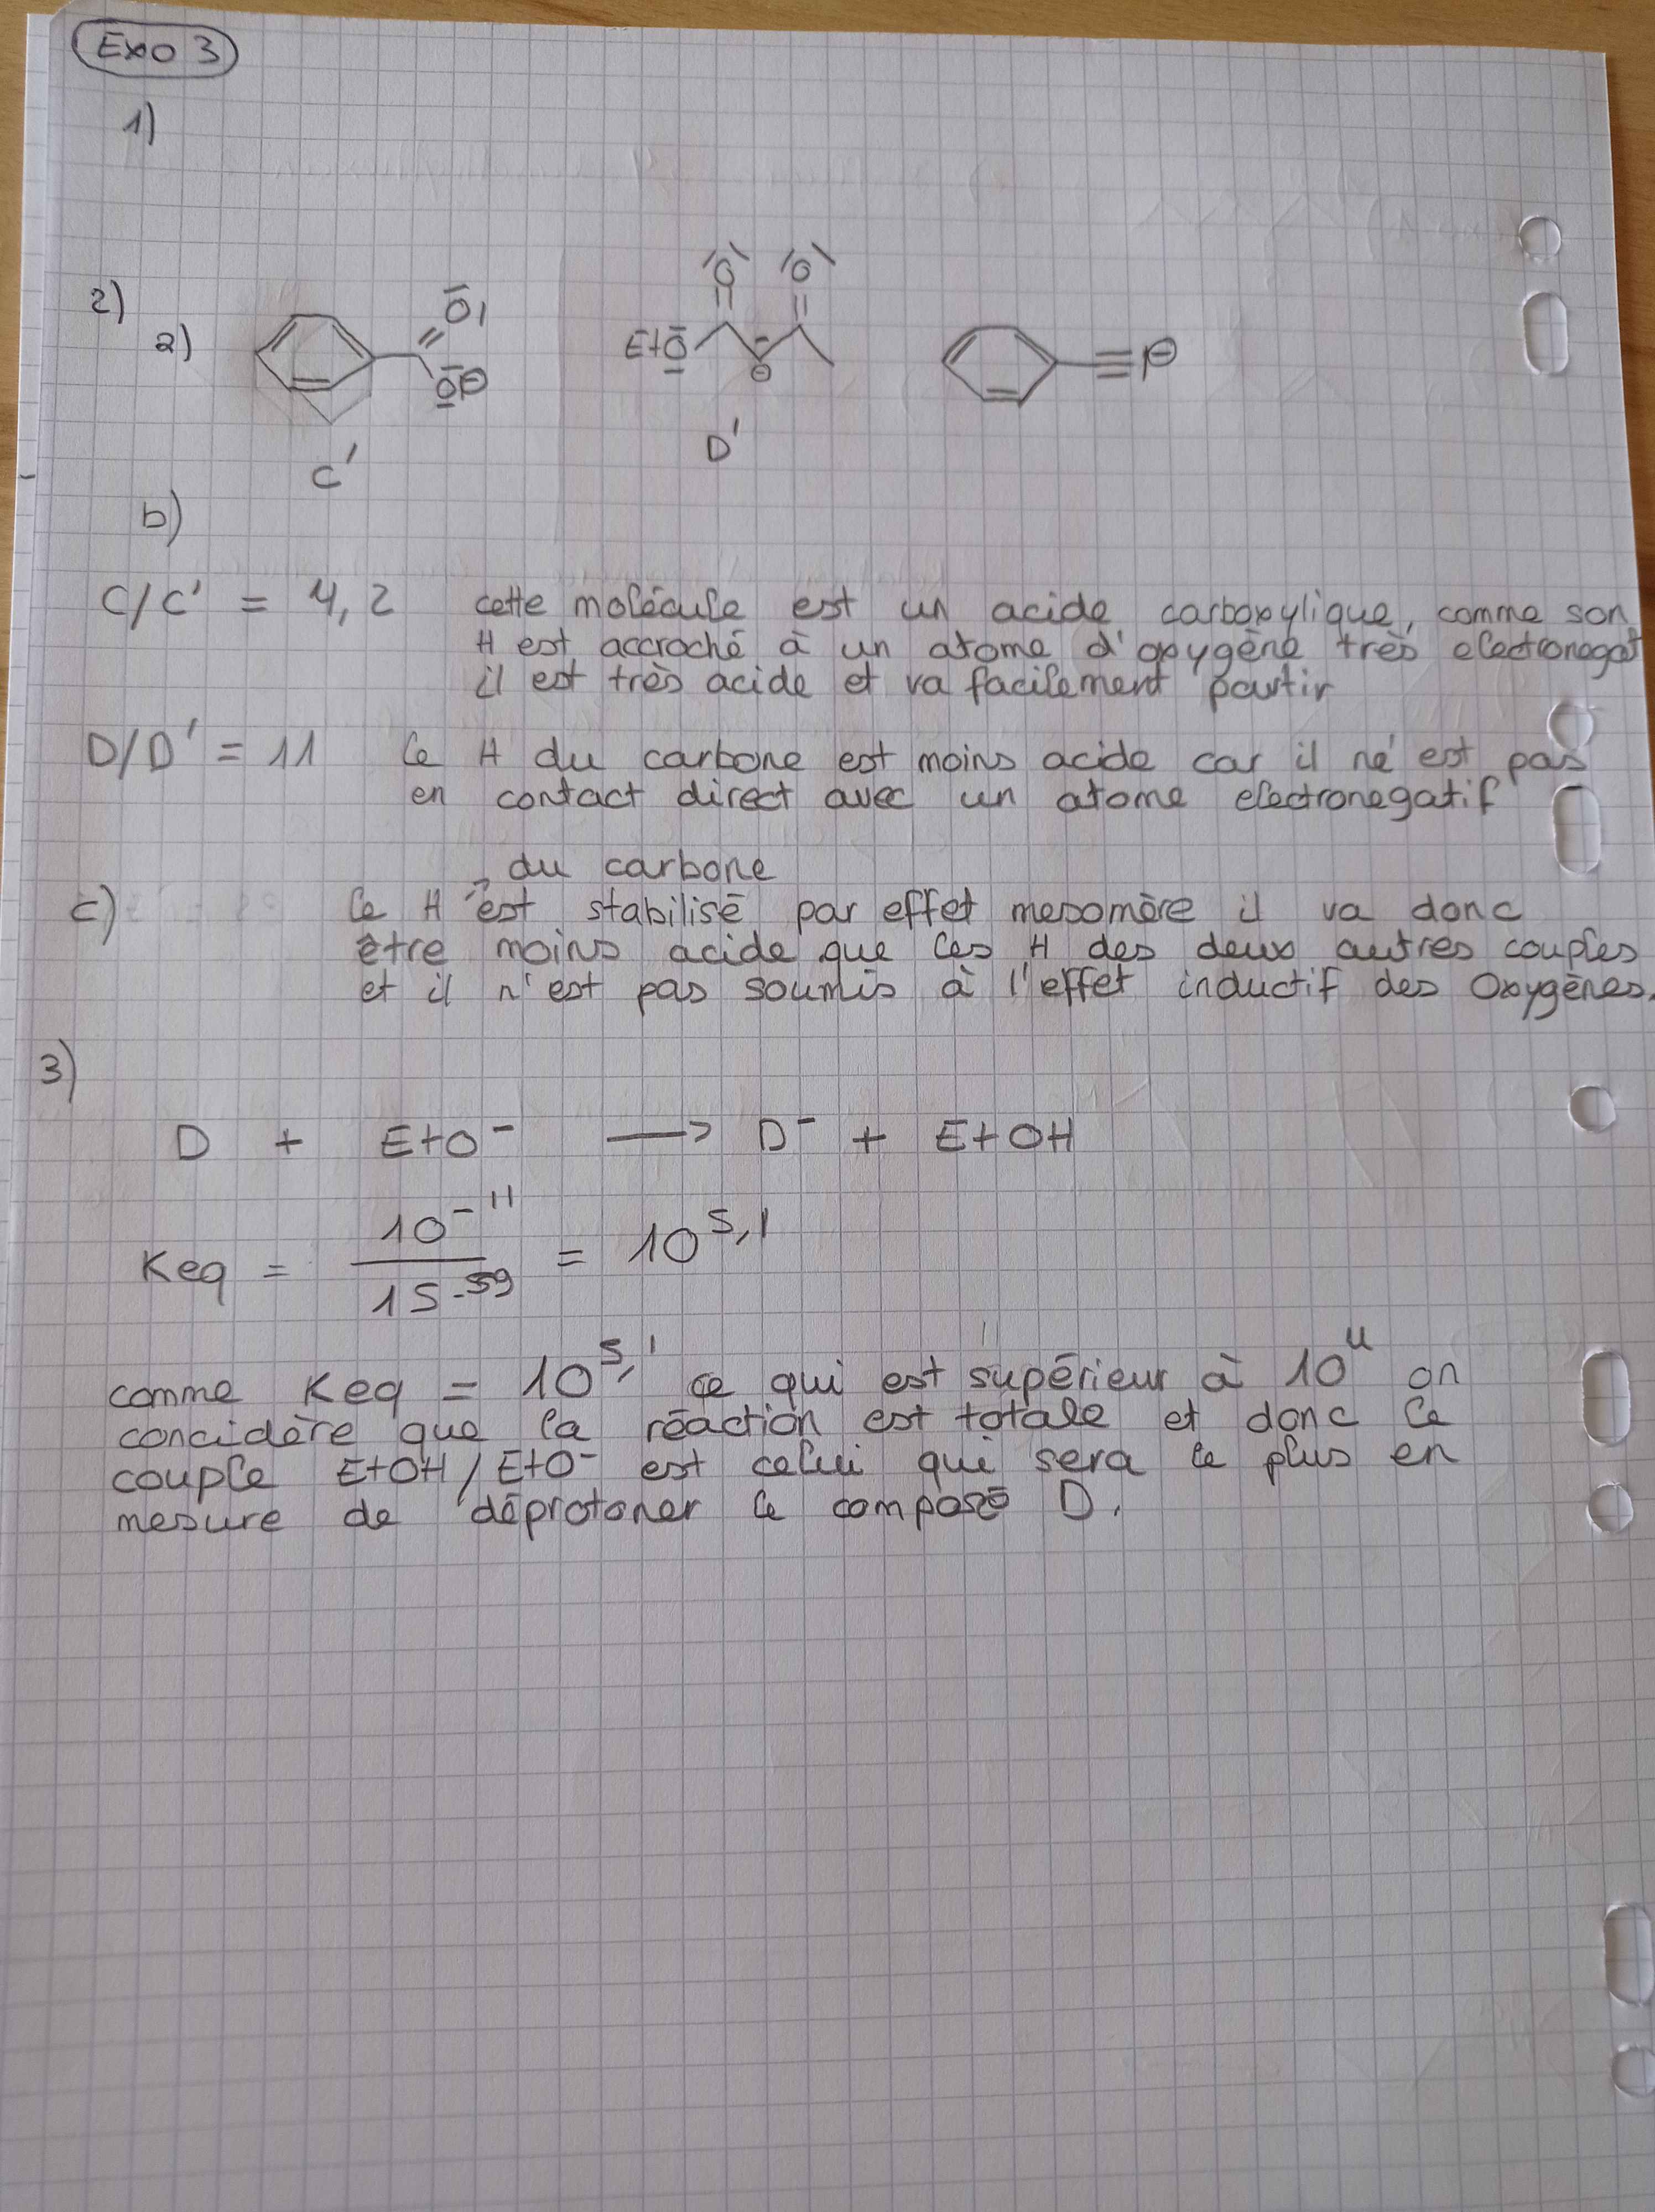 Exo 3
1)
2)
a)
O
O
EtO
O
O
C'
D'
b)
C/C' = 4,2 cette molécule est un acide carboxylique, comme son
H est accroché à un atome d'oxygène très electronegat
il est très acide et va facilement partir
D/D' = 11 le H du carbone est moins acide car il n'est pas
en contact direct avec un atome electronegatif
du carbone
c) le H est stabilisé par effet mesomère il va donc
être moins acide que les H des deux autres couples
et il n'est pas soumis à l'effet inductif des Oxygènes.
3)
D + EtO⁻ → D⁻ + EtOH
Keq = 10⁻¹¹ / 15⁻⁵⁹ = 10^5,1
comme Keq = 10^5,1 ce qui est supérieur à 10^4 on
concidère que la réaction est totale et donc le
couple EtOH/EtO⁻ est celui qui sera le plus en
mesure de déprotoner le composé D.